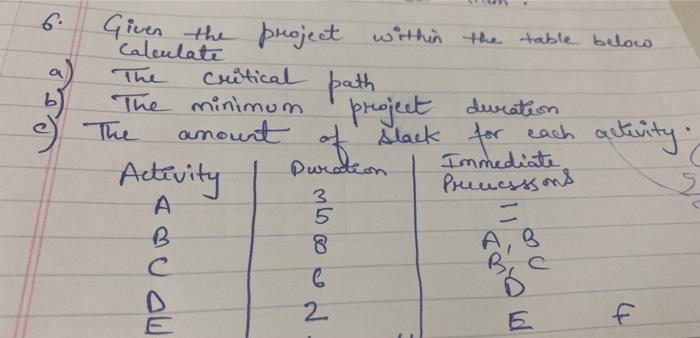 6. Given the project within the table below
Calculate
a) The critical path
b) The minimum project duration
c) The amount of slack for each activity.
Activity Duration Immediate
A 3 –
B 5 –
C 8 A, B
D 6 B, C
E 2 D
E f